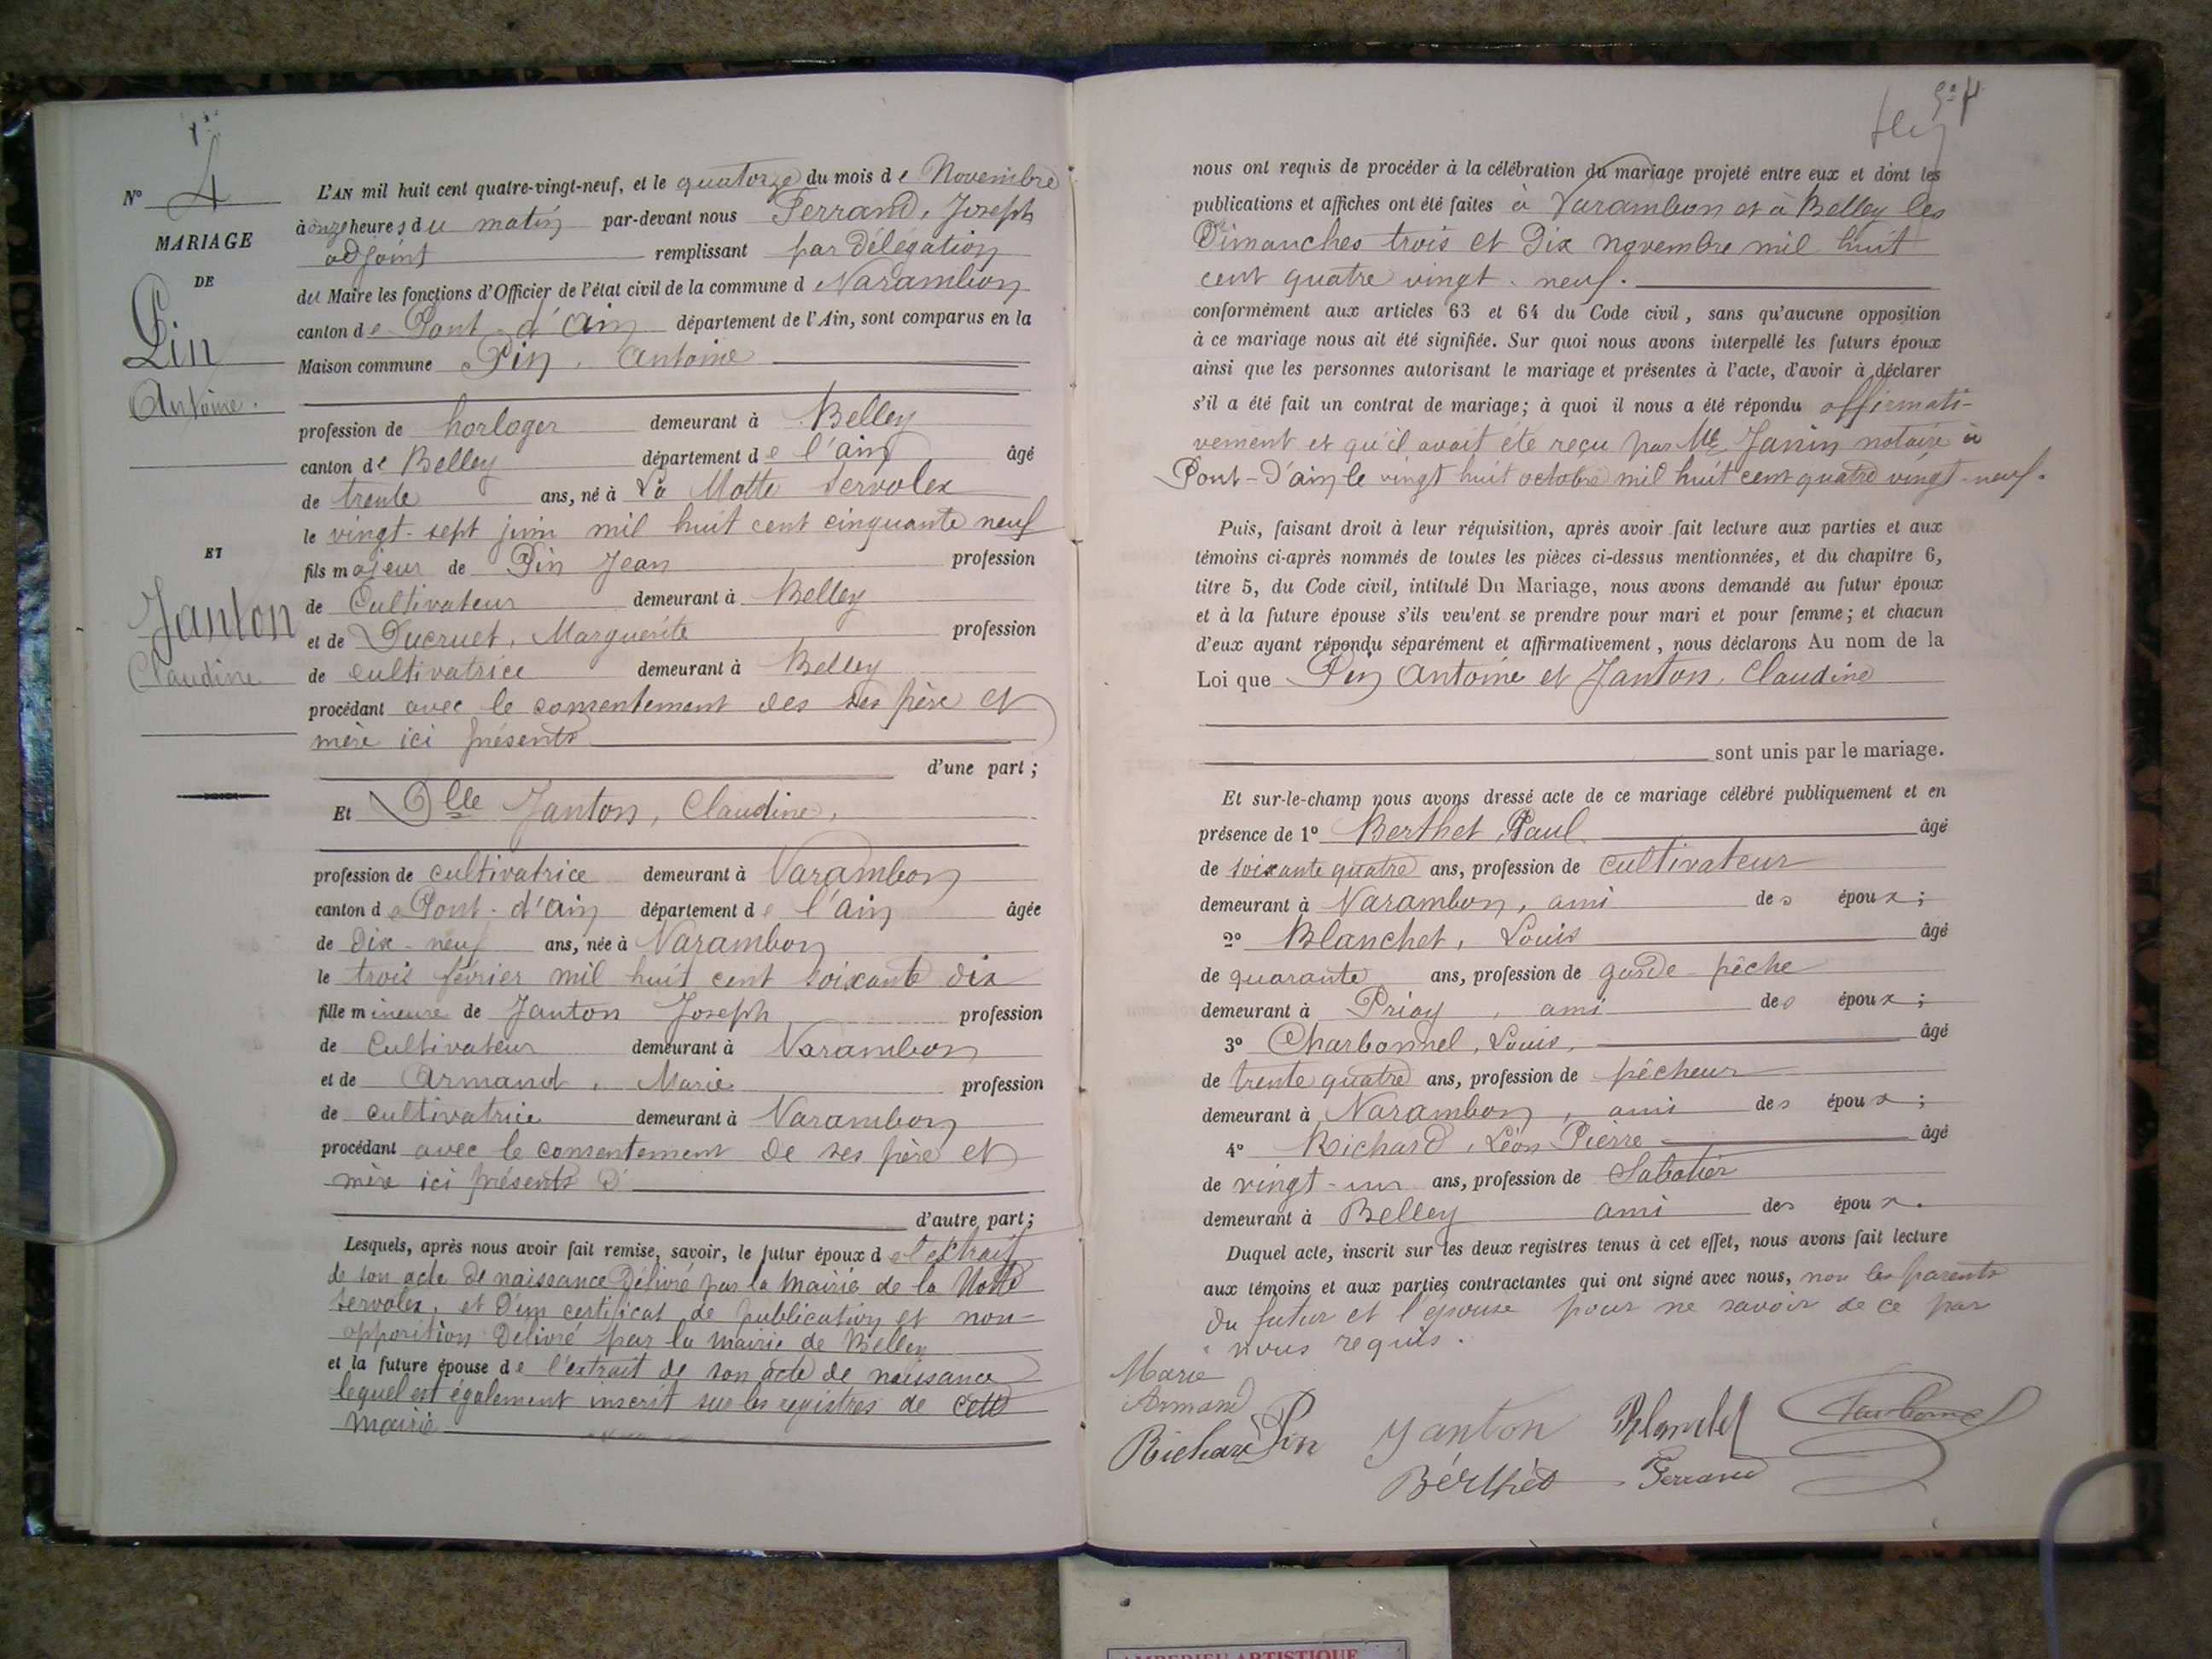 N° 4
MARIAGE
DE
Pin
Antoine.
ET
Janton
Claudine
L'AN mil huit cent quatre-vingt-neuf, et le quatorze du mois de Novembre
à onze heures du matin par-devant nous Ferrand, Joseph
adjoint remplissant par délégation
du Maire les fonctions d'Officier de l'état civil de la commune d Varambon
canton de Pont-d'Ain département de l'Ain, sont comparus en la
Maison commune Pin, Antoine
profession de horloger demeurant à Belley
canton de Belley département de l'ain âgé
de trente ans, né à La Motte Servolex
le vingt-sept juin mil huit cent cinquante neuf
fils majeur de Pin Jean profession
de Cultivateur demeurant à Belley
et de Ducruet, Marguerite profession
de cultivatrice demeurant à Belley
procédant avec le consentement des ses père et
mère ici présents
d'une part;
Et Dlle Janton, Claudine,
profession de cultivatrice demeurant à Varambon
canton de Pont-d'ain département de l'ain âgée
de dix-neuf ans, née à Varambon
le trois février mil huit cent soixante dix
fille mineure de Janton Joseph profession
de Cultivateur demeurant à Varambon
et de Armand, Marie profession
de cultivatrice demeurant à Varambon
procédant avec le consentement de ses père et
mère ici présents
d'autre part;
Lesquels, après nous avoir fait remise, savoir, le futur époux de l'extrait
de son acte de naissance délivré par la mairie de la Motte
Servolex, et d'un certificat de publication et non-
opposition délivré par la mairie de Belley
et la future épouse de l'extrait de son acte de naissance
lequel est également inscrit sur les registres de cette
mairie
nous ont requis de procéder à la célébration du mariage projeté entre eux et dont les
publications et affiches ont été faites à Varambon et à Belley les
Dimanches trois et dix novembre mil huit
cent quatre vingt-neuf.
conformément aux articles 63 et 64 du Code civil, sans qu'aucune opposition
à ce mariage nous ait été signifiée. Sur quoi nous avons interpellé les futurs époux
ainsi que les personnes autorisant le mariage et présentes à l'acte, d'avoir à déclarer
s'il a été fait un contrat de mariage; à quoi il nous a été répondu affirmati-
vement et qu'il avait été reçu par Me Janin notaire à
Pont-d'ain le vingt huit octobre mil huit cent quatre vingt-neuf.
Puis, faisant droit à leur réquisition, après avoir fait lecture aux parties et aux
témoins ci-après nommés de toutes les pièces ci-dessus mentionnées, et du chapitre 6,
titre 5, du Code civil, intitulé Du Mariage, nous avons demandé au futur époux
et à la future épouse s'ils veu'ent se prendre pour mari et pour femme; et chacun
d'eux ayant répondu séparément et affirmativement, nous déclarons Au nom de la
Loi que Pin Antoine et Janton, Claudine
sont unis par le mariage.
Et sur-le-champ nous avons dressé acte de ce mariage célébré publiquement et en
présence de 1° Berthet, Paul âgé
de soixante quatre ans, profession de cultivateur
demeurant à Varambon, ami des époux;
2° Blanchet, Louis âgé
de quarante ans, profession de garde-pêche
demeurant à Priay, ami des époux;
3° Charbonnel, Louis, âgé
de trente quatre ans, profession de pêcheur
demeurant à Varambon, ami des époux;
4° Richard, Léon Pierre âgé
de vingt-un ans, profession de Sabotier
demeurant à Belley ami des époux.
Duquel acte, inscrit sur les deux registres tenus à cet effet, nous avons fait lecture
aux témoins et aux parties contractantes qui ont signé avec nous, non les parents
du futur et l'épouse pour ne savoir de ce par
nous requis.
Marie
Armand
Richard Pin Janton Blanchet Charbonnel
Bérthet Ferrand
AMBERIEU ARTISTIQUE